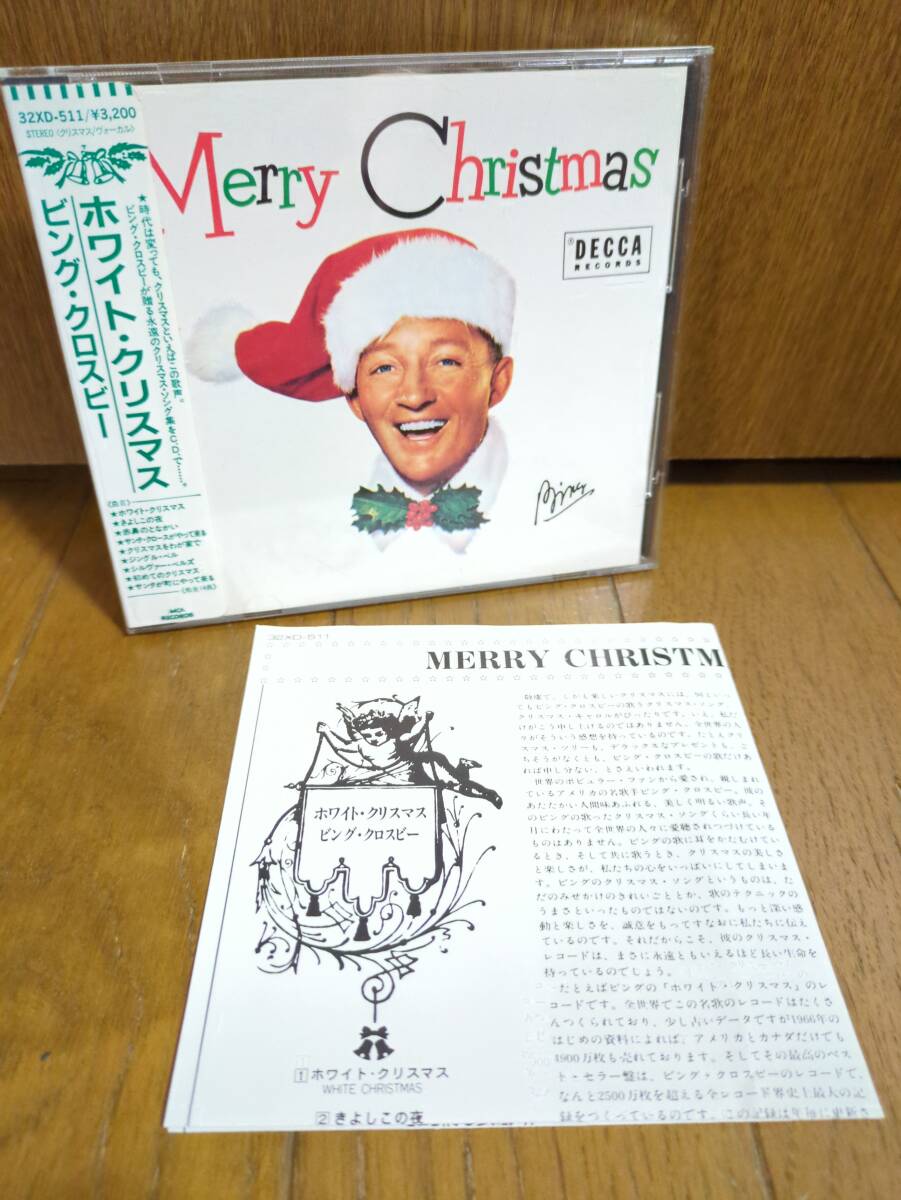 32XD-511/¥3,200
STEREO〈クリスマス/ヴォーカル〉
★時代は変っても、クリスマスといえばこの歌声。
ビング・クロスビーが贈る永遠のクリスマス・ソング集をC.D.で……。
ホワイト・クリスマス
ビング・クロスビー
《曲目》
★ホワイト・クリスマス
★きよしこの夜
★赤鼻のとなかい
★サンタ・クロースがやって来る
★クリスマスをわが家で
★ジングル・ベル
★シルヴァー・ベルズ
★初めてのクリスマス
★サンタが町にやって来る
MCA
RECORDS
Merry Christmas
DECCA
RECORDS
Bing
32XD-511
MERRY CHRISTM
ホワイト・クリスマス
ビング・クロスビー
1 ホワイト・クリスマス
WHITE CHRISTMAS
2 きよしこの夜
敬虔で、しかも楽しいクリスマスには、何といっ
てもビング・クロスビーの歌うクリスマス・ソング、
クリスマス・キャロルがぴったりです。いえ、私だ
けがこう申し上げるのではありません。全世界の人
々がそういう感想を持っているのです。たとえクリ
スマス・ツリーも、デラックスなプレゼントも、ご
ちそうがなくとも、ビング・クロスビーの歌だけあ
れば申し分ない、とさえいわれます。
世界のポピュラー・ファンから愛され、親しまれ
ているアメリカの名歌手ビング・クロスビー。彼の
あたたかい人間味あふれる、美しく明るい歌声、そ
のビングの歌ったクリスマス・ソングくらい長い年
月にわたって全世界の人々に愛聴されつづけている
ものはありません。ビングの歌に耳をかたむけてい
るとき、そして共に歌うとき、クリスマスの美しさ
と楽しさが、私たちの心をいっぱいにしてしまいま
す。ビングのクリスマス・ソングというものは、た
だのみせかけのきれいごととか、歌のテクニックの
うまさといったものではないのです。もっと深い感
動と楽しさを、誠意をもってすなおに私たちに伝え
ているのです。それだからこそ、彼のクリスマス・
レコードは、まさに永遠ともいえるほど長い生命を
持っているのでしょう。
たとえばビングの「ホワイト・クリスマス」のレ
コードです。全世界でこの名歌のレコードはたくさ
んつくられており、少し古いデータですが1966年の
はじめの資料によれば、アメリカとカナダだけでも
4900万枚も売れております。そしてその最高のベス
ト・セラー盤は、ビング・クロスビーのレコードで、
なんと2500万枚を超える全レコード界史上最大の記
録をつくっているのです。この記録は年毎に更新さ